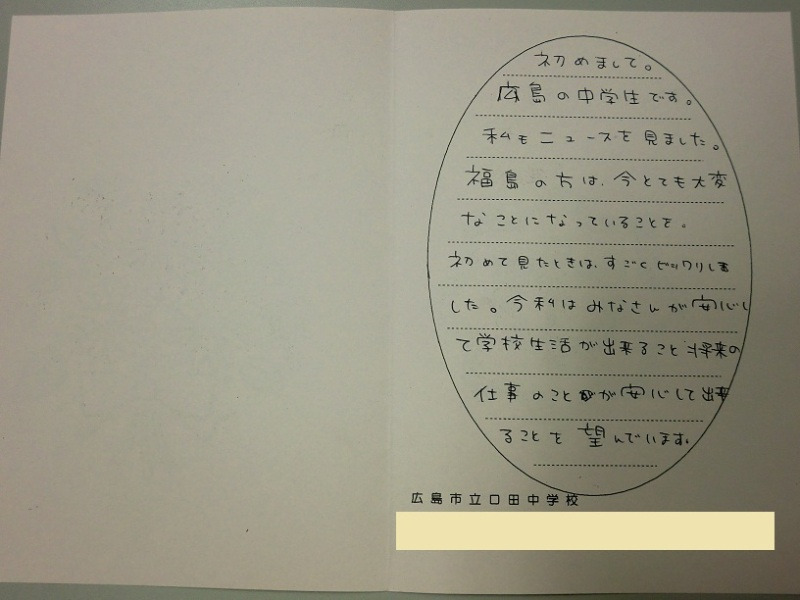 初めまして。
広島の中学生です。
私もニュースを見ました。
福島の方は、今とても大変
なことになっていることを。
初めて見たときは、すごくビックリしま
した。今私はみなさんが安心し
て学校生活が出来ること将来の
仕事のことがが安心して出来
ることを望んでいます。
広島市立口田中学校